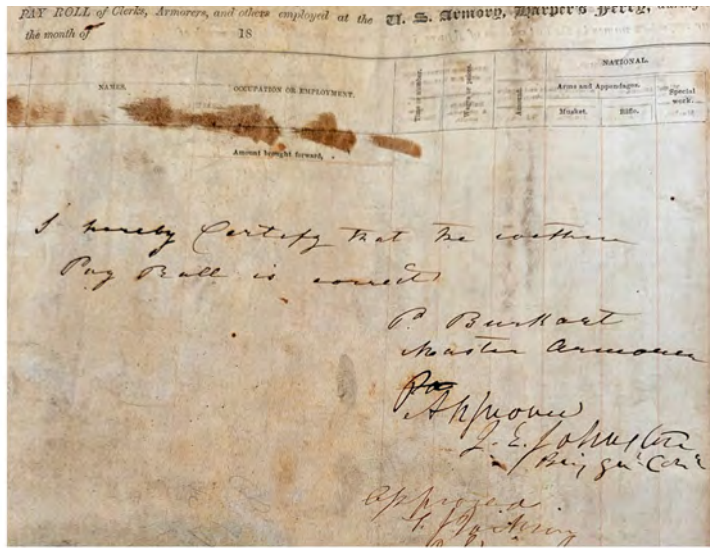 PAY ROLL of Clerks, Armorers, and others employed at the U. S. Armory, Harper's Ferry, during
the month of 18
NATIONAL.
NAMES.
OCCUPATION OR EMPLOYMENT.
Arms and Appendages.
Special work.
Amount.
Musket.
Rifle.
Amount brought forward,
I hereby Certify that the within
Pay Roll is correct
P. Burkart
Master Armorer
Approved
J. E. Johnston
Brig Gen Com
Approved